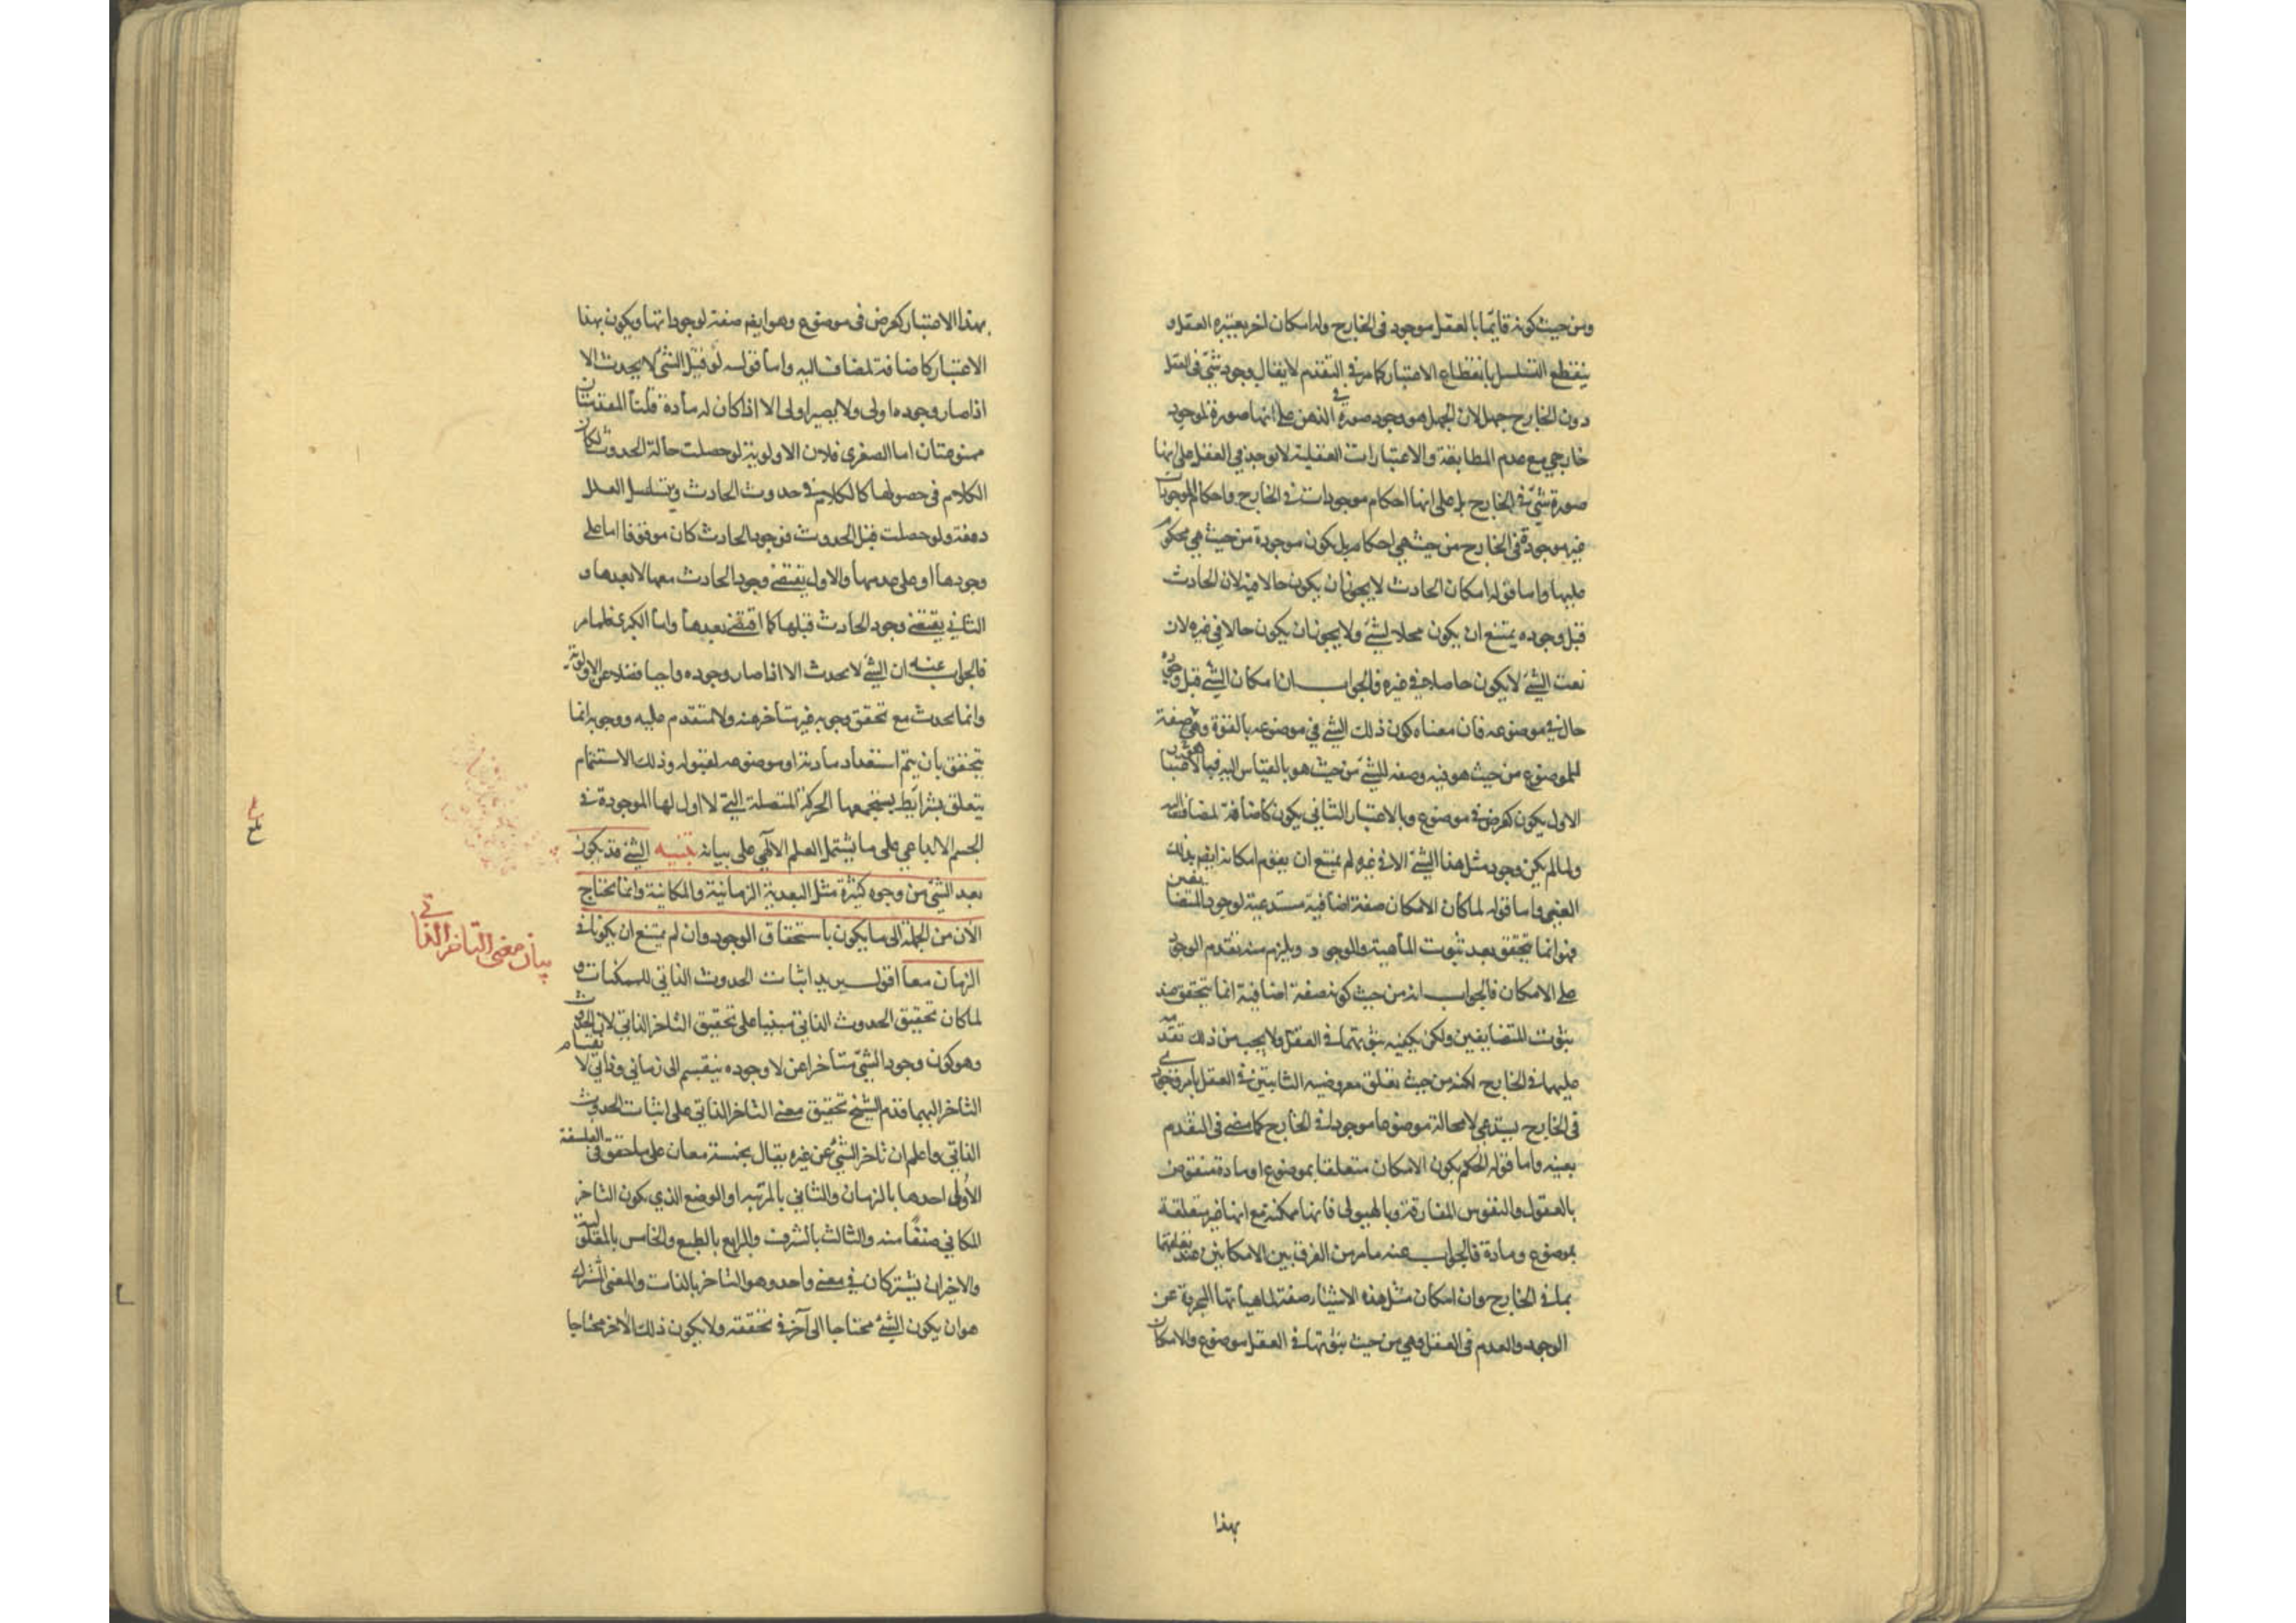 ومن حيث كونه قايما بالعقل موجود فى الخارج وله امكان اخر يعتبره العقل و
ينقطع التسلسل بانقطاع الاعتبار كما مر فى التقدم لا يقال وجود شئ فى العقل
دون الخارج جهل لان الجهل هو وجود صورة فى الذهن على انها صورة لموجود
خارجي مع عدم المطابقة والاعتبارات العقلية لا توجد فى العقل على انها
صورة شئ فى الخارج بل على انها احكام موجودات فى الخارج واحكام الموجودات
غير موجودة فى الخارج من حيث هي احكام بل يكون موجودة من حيث هي محكوم
عليها واما قوله امكان الحادث لا يجوز ان يكون حالا فيه لان الحادث
قبل وجوده يمتنع ان يكون محلا لشئ ولا يجوز ان يكون حالا في غيره لان
نعت الشئ لا يكون حاصلا في غيره فالجواب ان امكان الشئ قبل وجوده
حال فى موضوعه فان معناه كون ذلك الشئ في موضوعه بالقوة وهي صفة
للموضوع من حيث هو فيه وصفة للشئ من حيث هو بالقياس اليه فبالاعتبار
الاول يكون كعرض فى موضوع وبالاعتبار الثاني يكون كاضافة لمضاف اليه
ولما لم يكن وجود مثل هذا الشئ الا فى غيره لم يمتنع ان يقوم امكانه ايضم بذلك
الغير واما قوله لما كان الامكان صفة اضافية مستدعية لوجود المتضايفين
فهو انما يتحقق بعد ثبوت الماهية والوجود ويلزم منه تقدم الوجود
على الامكان فالجواب انه من حيث كونه صفة اضافية انما يتحقق عند
ثبوت المتضايفين ولكن يكفيه ثبوتهما فى العقل ولا يجب من ذلك تقدمه
عليهما فى الخارج لكنه من حيث تعلق معروضيه الثابتين فى العقل بامر وجودي
فى الخارج يستدعي لا محالة موضوعا موجودا فى الخارج كما مضى فى التقدم
بعينه واما قوله الحكم بكون الامكان متعلقا بموضوع او مادة منقوض
بالعقول والنفوس المفارقة وبالهيولى فانها ممكنة مع انها غير متعلقة
بموضوع ومادة فالجواب عنه ما مر من الفرق بين الامكانين عند تعلقهما
بما فى الخارج وان امكان مثل هذه الاشياء صفة لماهياتها المجردة عن
الوجود والعدم فى العقل وهي من حيث ثبوتها فى العقل موضوع والامكان
بهذا
بهذا الاعتبار كعرض فى موضوع وهو ايضم صفة لوجوداتها ويكون بهذا
الاعتبار كاضافة لمضاف اليه واما قوله لو قيل الشئ لا يحدث الا
اذا صار وجوده اولى ولا يصير اولى الا اذا كان له مادة قلنا المقدمتان
ممنوعتان اما الصغرى فلان الاولوية لو حصلت حالة الحدوث لكان
الكلام فى حصولها كالكلام فى حدوث الحادث ويتسلسل العلل
دفعة ولو حصلت قبل الحدوث فوجود الحادث كان موقوفا اما على
وجودها او على عدمها والاول يقتضى وجود الحادث معها لا بعدها و
الثاني يقتضى وجود الحادث قبلها كما اقتضى بعدها واما الكبرى فلما مر
فالجواب عنه ان الشئ لا يحدث الا اذا صار وجوده واجبا فضلا عن الاولوية
وانما يحدث مع تحقق وجوبه غير متاخر عنه ولا متقدم عليه ووجوبه انما
يتحقق بان يتم استعداد مادته او موضوعه لقبوله وذلك الاستتمام
يتعلق بشرايط يستجمعها الحركة المتصلة التي لا اول لها الموجودة فى
الجسم الابداعي على ما يشتمل العلم الالهي على بيانه تنبيه الشئ قد يكون
بعد الشئ من وجوه كثيرة مثل البعدية الزمانية والمكانية وانما نحتاج
الآن من الجملة الى ما يكون باستحقاق الوجود وان لم يمتنع ان يكونا فى
الزمان معا اقول يريد اثبات الحدوث الذاتي للممكنات و
لما كان تحقيق الحدوث الذاتي مبنيا على تحقيق التاخر الذاتي لان الحدوث
وهو كون وجود الشئ متاخرا عن لا وجوده ينقسم الى زماني وذاتي لانقسام
التاخر اليهما قدم الشيخ تحقيق معنى التاخر الذاتي على اثبات الحدوث
الذاتي واعلم ان تاخر الشئ عن غيره يقال بخمسة معان على ما حقق فى الفلسفة
الاولى احدها بالزمان والثاني بالمرتبه او الوضع الذي يكون التاخر
المكاني صنفا منه والثالث بالشرف والرابع بالطبع والخامس بالمعلولية
والاخيران يشتركان فى معنى واحد وهو التاخر بالذات والمعنى المشترك
هو ان يكون الشئ محتاجا الى آخر فى تحققه ولا يكون ذلك الاخر محتاجا
بيان معنى التاخر الذاتي